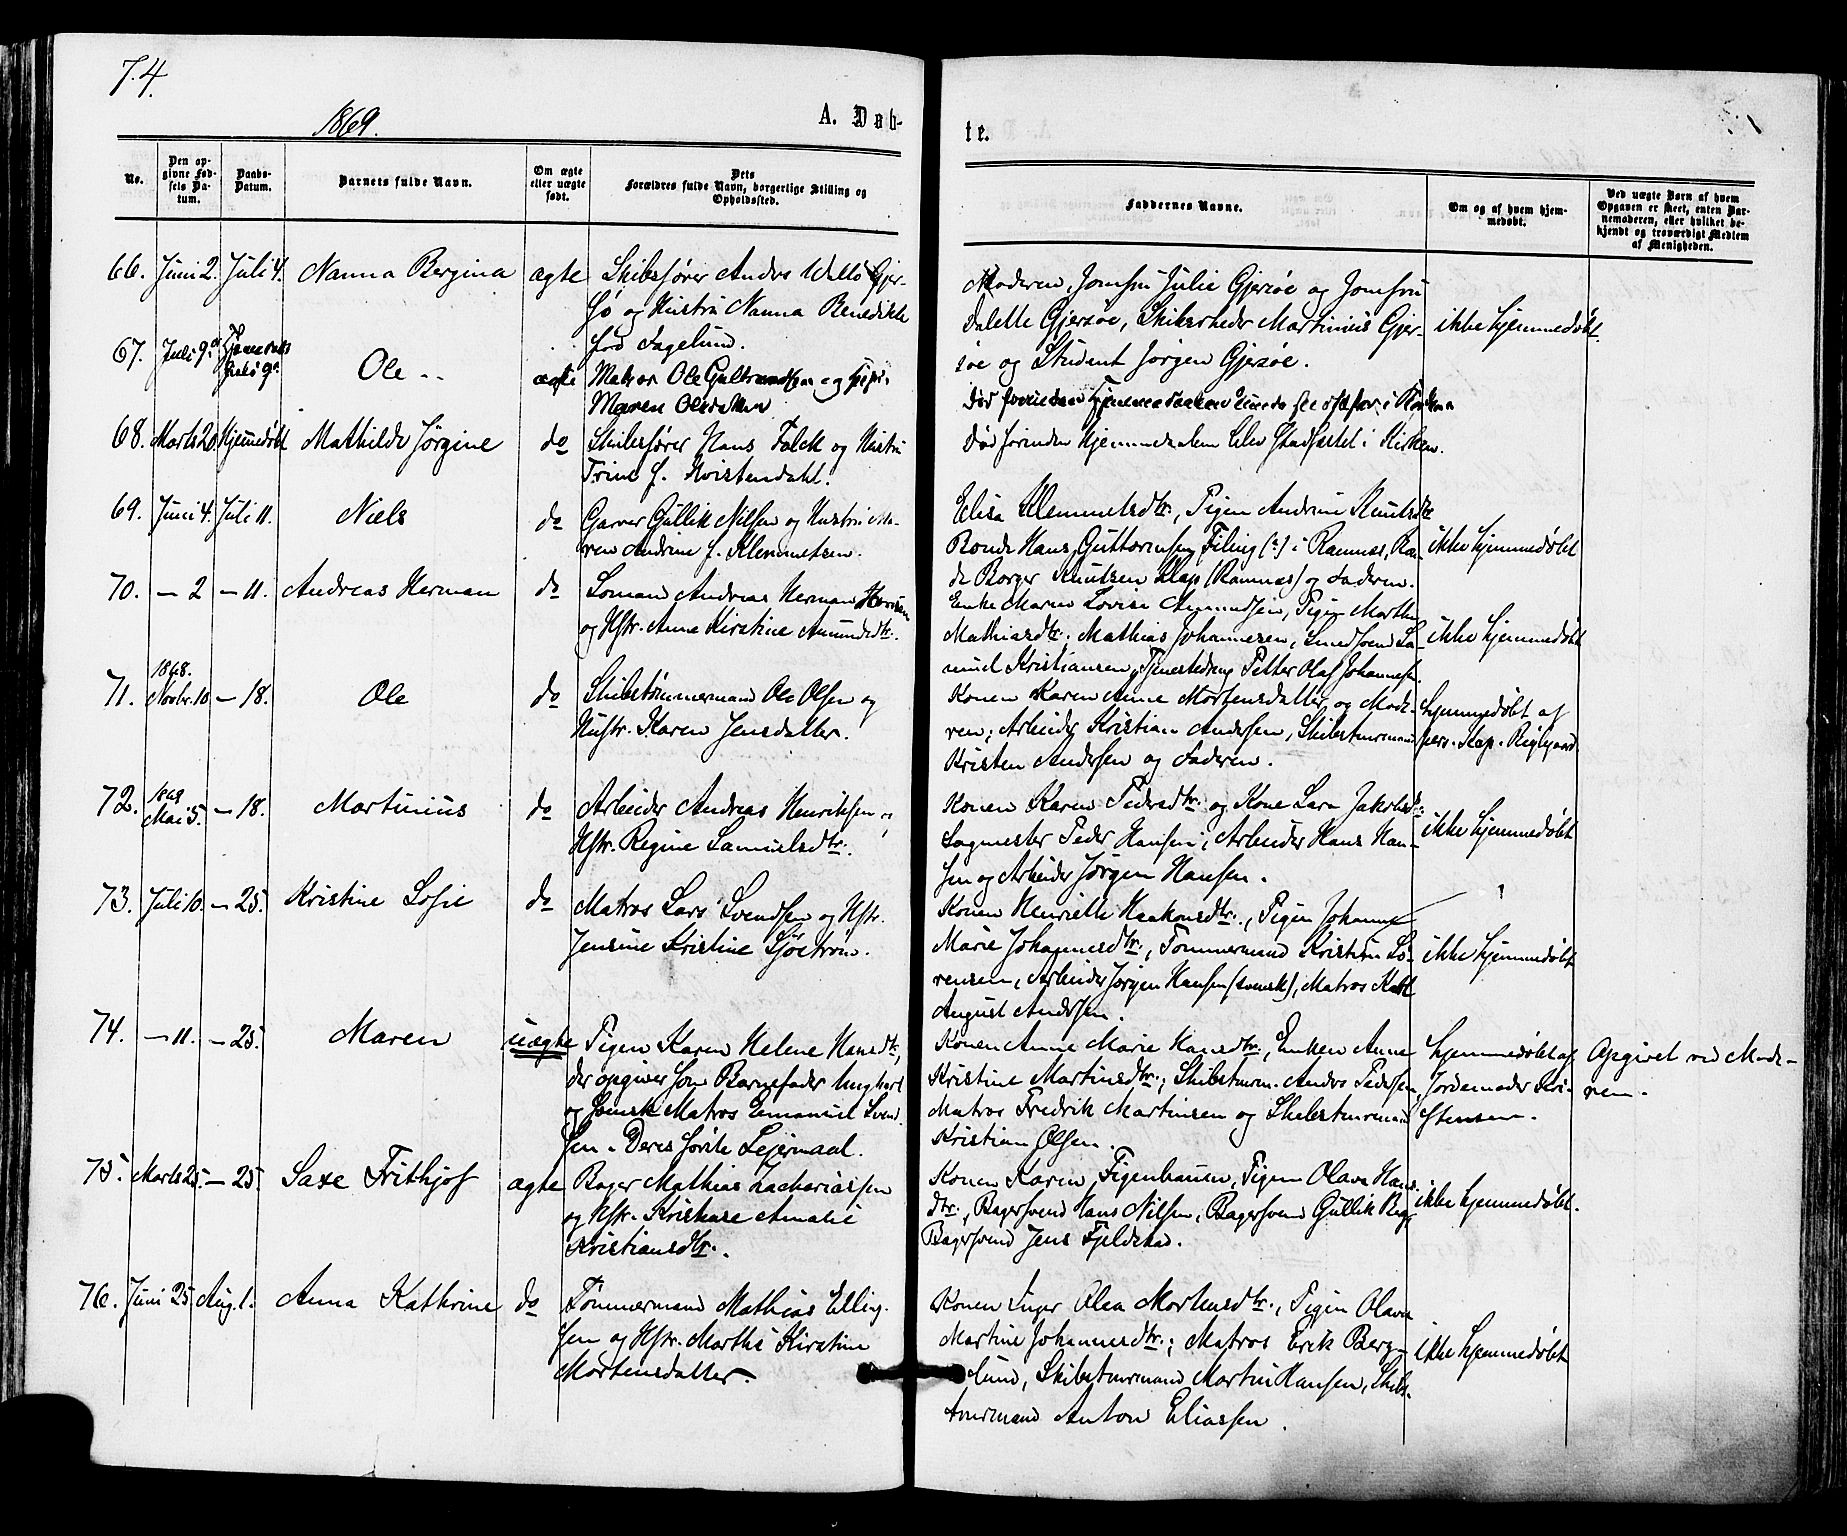 74.
1869.
A. Døb-
te.
No.
Den op-
givne Fød-
sels Da-
tum.
Daabs-
Datum.
Barnets fulde Navn.
Om ægte
eller uægte
født.
Dets
Forældres fulde Navn, borgerlige Stilling og
Opholdssted.
Faddernes Navne.
Om og af hvem hjem-
medøbt.
Ved uægte Børn af hvem
Opgaven er skeet, enten Bar-
nemoderen, eller hvilket be-
kjendt og troværdigt Medlem
af Menigheden.
66. Juni 2. Juli 4. Nanna Bergina ægte Skibsfører Andrs Gjer-
sø og Hustru Nanna Benedikte
fød Fagelund.
Moderen, Jomfru Julie Gjersøe og Jomfru
Dalette Gjersøe, Skibsrheder Martinius Gjer-
søe og Student Jørgen Gjersøe.
ikke hjemmedøbt.
67. Juli 9de Ole ægte Matros Ole og
Maren Olsdatter
Død forinden
68. Marts 20. Hjemmedøbt Mathilde Jørgine do Skibsfører Hans Falck og Hustru
Trine f. Kvistendahl.
Død forinden Hjemmedaaben blev stadfæstet i Kirken.
69. Juni 4. Juli 11. Niels do Garver Gullik Nilsen og Hustru Ma-
ren Andrine f. Klemmetsen.
Elisa Klemmetsdtr., Pigen Andrine Knutsdtr
Bonde Hans Guttormsen Filing (?) i Ramnes, Bon-
de Borger Knutsen Klop (Ramnes) og Faderen.
ikke hjemmedøbt
70. - 2 - 11. Andreas Herman do Sømand Andreas Herman
og Hstr. Anne Kirstine Amundsdtr.
Enke Maren Lovise Amundsen, Pigen Marthe
Mathiasdtr. Mathias Johannesen, Smedsvend Sa-
muel Kristiansen, Tjenestedreng Petter Olaf Johannesen.
ikke hjemmedøbt
71. 1868. Novbr. 10 - 18. Ole do Skibstømmermand Ole Olsen og
Hustr. Karen Jensdatter.
Konen Karen Anne Mortensdatter og Mode-
ren; Arbeider Kristian Andersen, Skibstmrmand
Kristen Andersen og Faderen.
hjemmedøbt af
pers. Kap.
72. 1869 Mai 5. - 18. Martinius do Arbeider Andreas Henriksen og
Hstr. Regine Samuelsdtr.
Konen Karen Pedersdtr. og Kone Lara Jakobsd.
Sagmester Peder Hansen, Arbeider Hans Han-
sen og Arbeider Jørgen Hansen.
ikke hjemmedøbt
73. Juli 10. - 25. Kristine Sofie do Matros Lars Svendsen og Hstr.
Jensine Kristine Sjöström.
Konen Henriette Haakonsdtr., Pigen Johanne
Marie Johannesdtr., Tømmermand Kristian Sø-
rensen, Arbeider Jørgen Hansen (svensk), Matros Karl
August Andersen.
ikke hjemmedøbt
74. - 11. - 25. Maren uægte Pigen Karen Helene Hansdtr,
der opgiver som Barnefader Ungkarl
og svensk Matros Emanuel Svend-
sen. Deres første Leiermaal.
Konen Anne Marie Hansdtr., Enken Anne
Kristine Martinsdtr.; Skibstmrm. Anders Pedersen,
Matros Fredrik Martinsen og Skibstmrmand
Kristian Olsen.
hjemmedøbt af
Jordemoder Kri-
stensen.
Opgivet ved Mode-
ren.
75. Marts 25. - 25. Saxe Frithjof ægte Bager Mathias Zachariassen
og Hstr. Kristiane Amalie
Kristiansdtr.
Konen Karen Figenhausen, Pigen Olava Hans-
dtr., Bagersvend Hans Nilsen, Bagersvend Gullik
Bagersvend Jens Fjeldstad.
ikke hjemmedøbt.
76. Juni 25. Aug. 1. Anna Kathrine do Tømmermand Mathias Elling-
sen og Hstr. Marthe Kirstine
Mortensdatter.
Konen Inger Olea Mortensdtr., Pigen Olava
Martine Johannesdtr.; Matros Erik Berg-
lund, Skibstmrmand Martin Hansen, Skibs-
tmrmand Anton Eliassen.
ikke hjemmedøbt